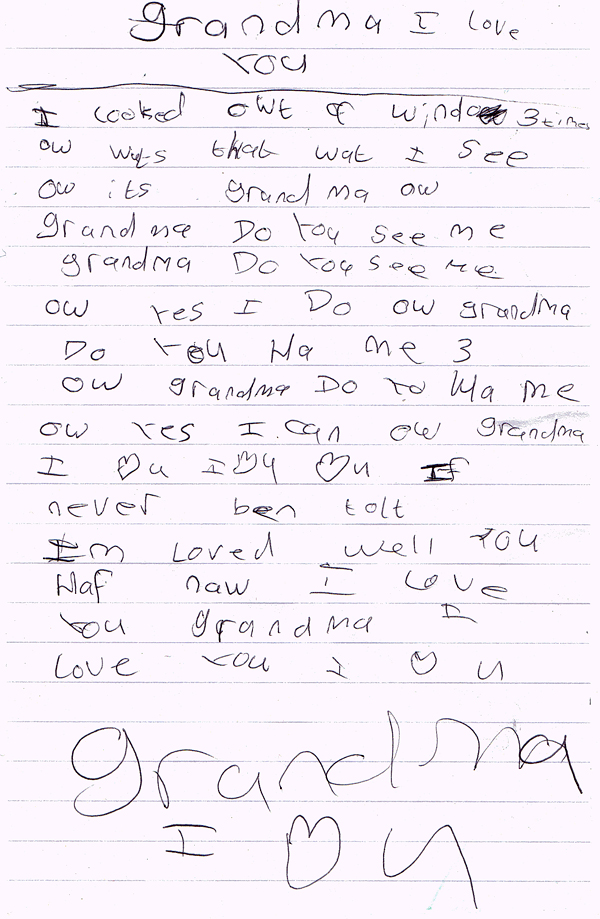 grandma I love
you
I looked owt of window 3 times
ow wits that wat I see
ow its grandma ow
grandma Do You see me
grandma Do You see me
ow yes I Do ow grandma
Do You Ha me 3
ow grandma Do Yo Ha me
ow yes I can ow grandma
I ♡ u I ♡ u ♡ u If
never ben tolt
Im loved well You
Haf naw I love
You grandma I
love You I ♡ u
grandma
I ♡ u